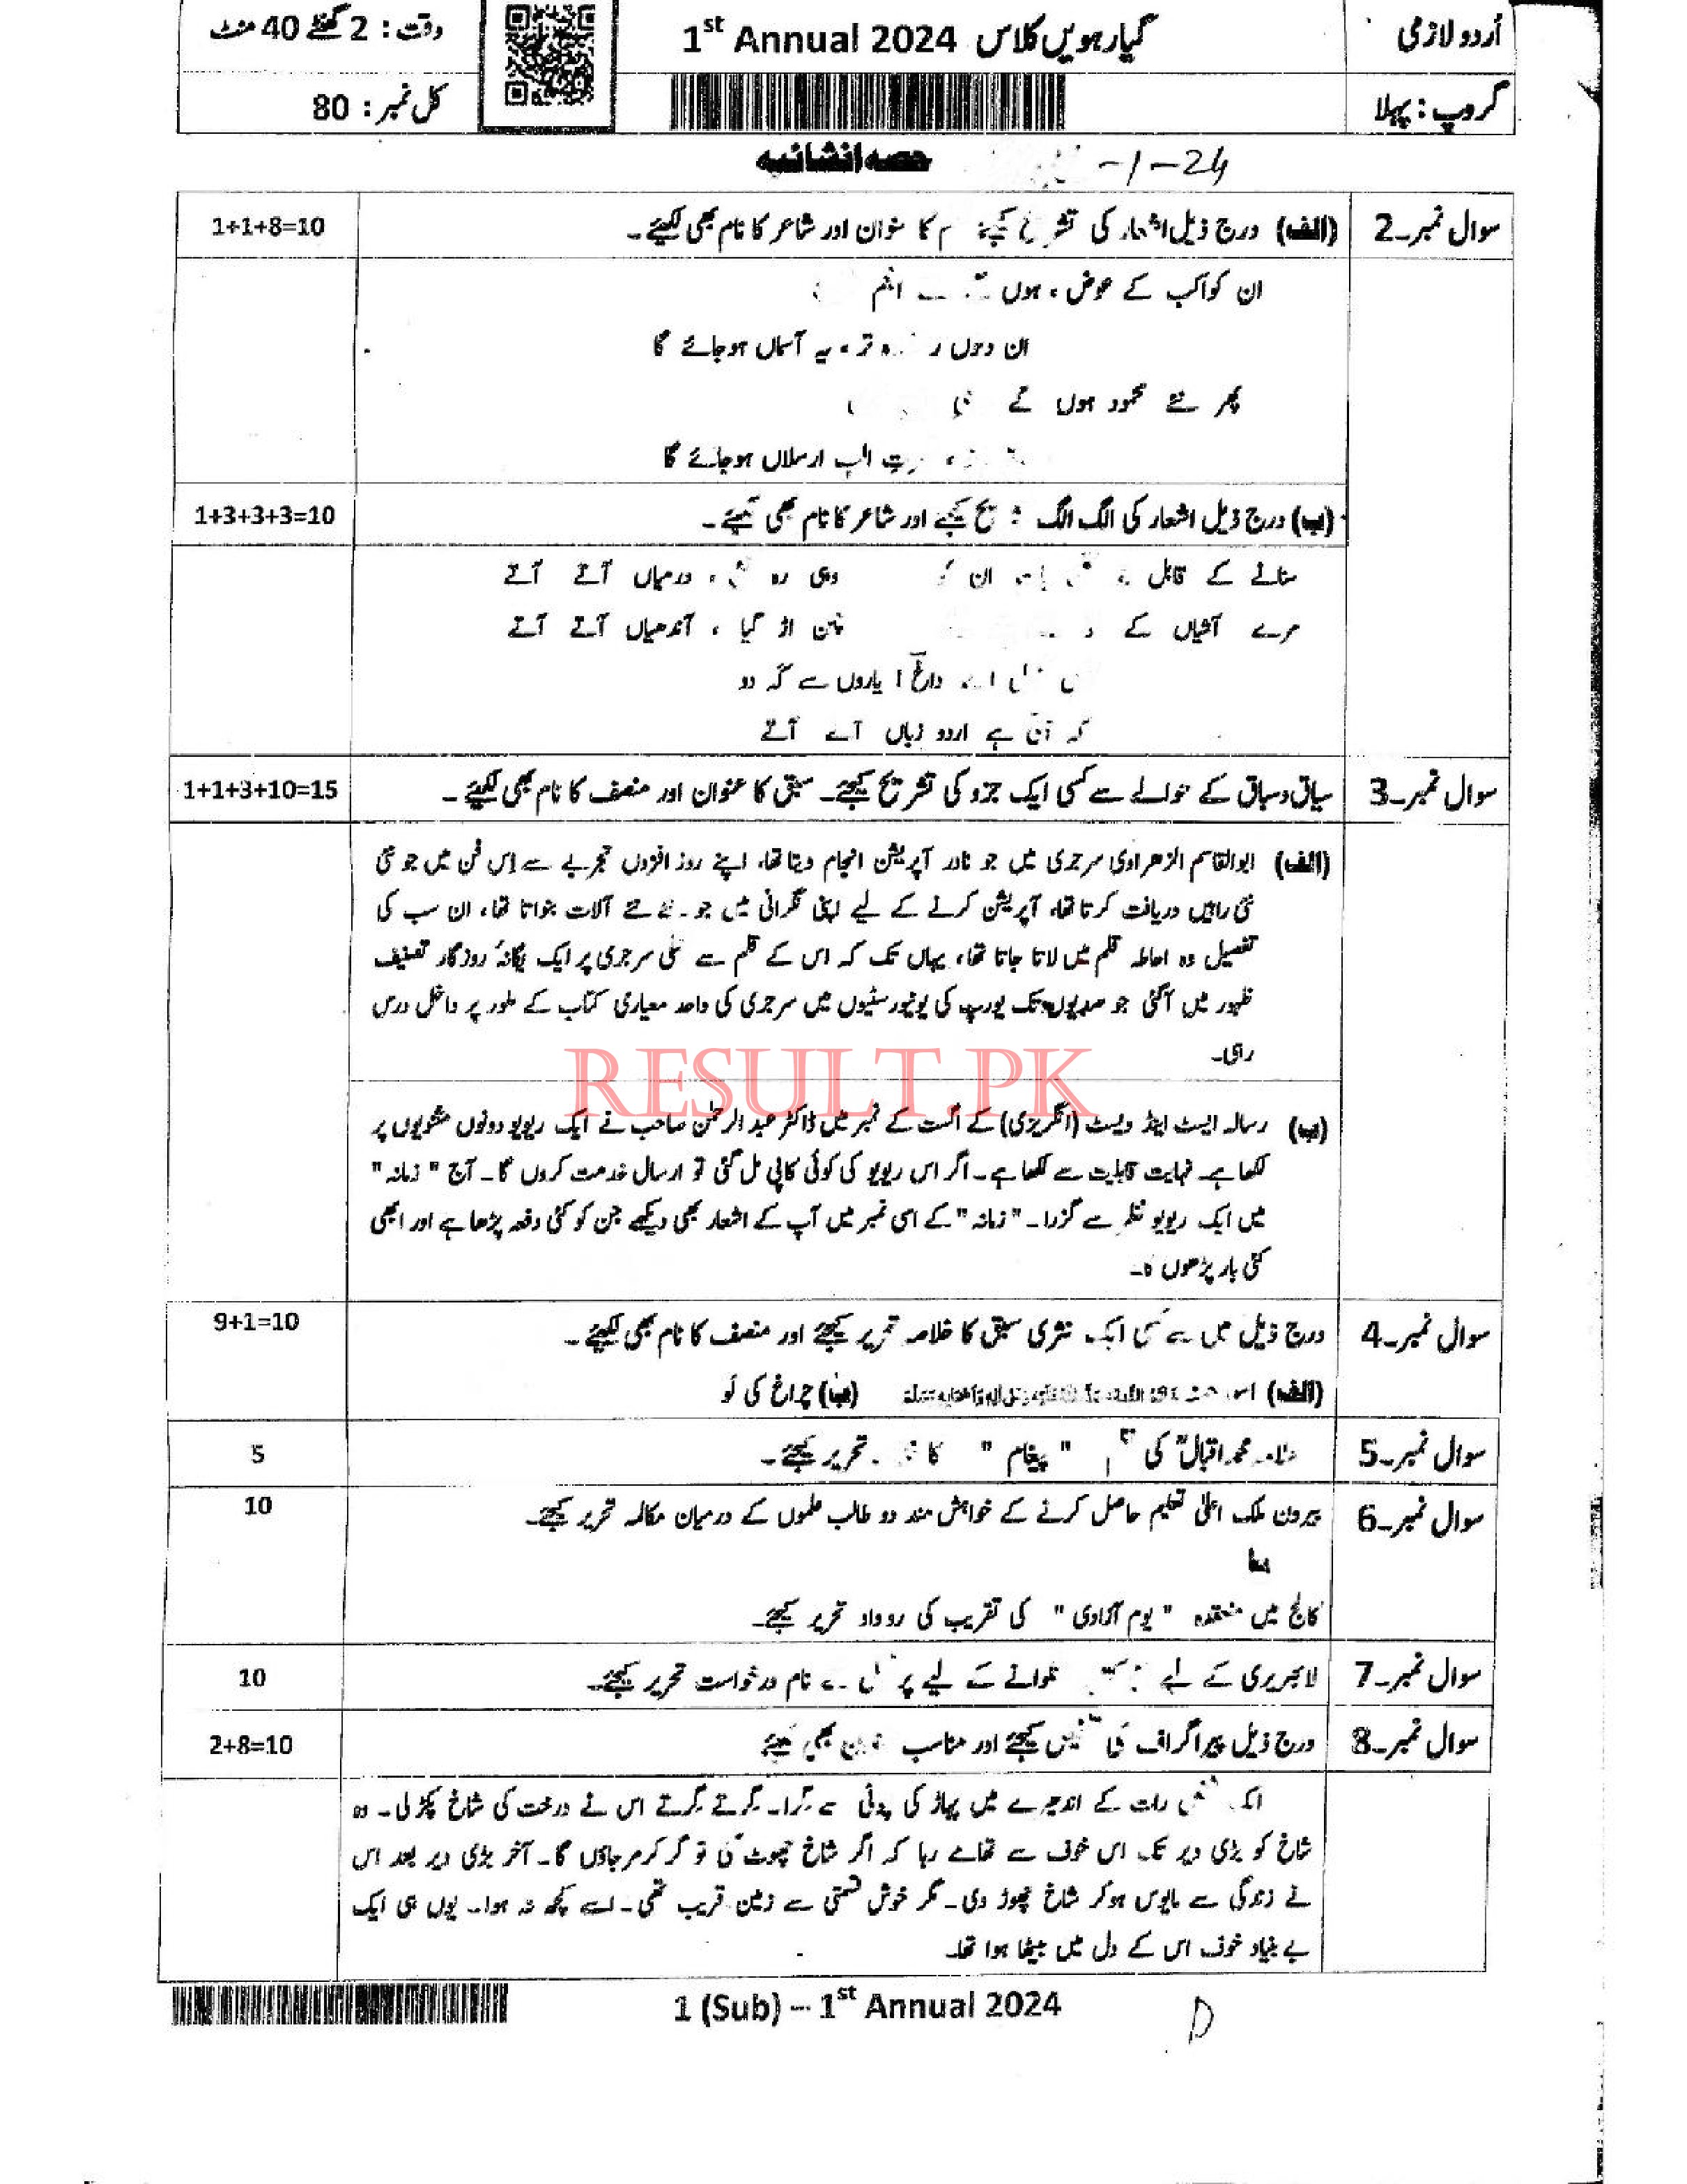 اُردو لازمی
گیارہویں کلاس 1st Annual 2024
وقت: 2 گھنٹے 40 منٹ
گروپ: پہلا
کل نمبر: 80
حصہ انشائیہ
-1-24
سوال نمبر 2۔ (الف) درج ذیل اشعار کی کا عنوان اور شاعر کا نام بھی لکھیے۔ 1+1+8=10
ان کواکب کے عوض، ہوں انجم
ان دنوں تر، یہ آسماں ہوجائے گا
پھر نئے محمود ہوں گے
الپ ارسلاں ہوجائے گا
(ب) درج ذیل اشعار کی الگ الگ کیجیے اور شاعر کا نام بھی 1+3+3+3=10
سنانے کے قابل ان وہی رہ ، درمیاں آتے آتے
مرے آشیاں کے اڑ گیا ، آندھیاں آتے آتے
داغؔ ! یاروں سے کہ دو
کہ آتی ہے اردو زباں آتے آتے
سوال نمبر 3۔ سیاق و سباق کے حوالے سے کسی ایک جزو کی تشریح کیجیے۔ سبق کا عنوان اور مصنف کا نام بھی لکھیے۔ 1+1+3+10=15
(الف) ابوالقاسم الزھراوی سرجری میں جو نادر آپریشن انجام دیتا تھا، اپنے روز افزوں تجربے سے اِس فن میں جو نئی
نئی راہیں دریافت کرتا تھا، آپریشن کرنے کے لیے اپنی نگرانی میں جو نئے نئے آلات بنواتا تھا، ان سب کی
تفصیل وہ احاطہ قلم میں لاتا جاتا تھا، یہاں تک کہ اس کے قلم سے عملی سرجری پر ایک یگانۂ روزگار تصنیف
ظہور میں آگئی جو صدیوں تک یورپ کی یونیورسٹیوں میں سرجری کی واحد معیاری کتاب کے طور پر داخل درس
رہی۔
RESULT.PK
(ب) رسالہ ایسٹ اینڈ ویسٹ (انگریزی) کے اگست کے نمبر میں ڈاکٹر عبدالرحمٰن صاحب نے ایک ریویو دونوں مثنویوں پر
لکھا ہے۔ نہایت قابلیت سے لکھا ہے۔ اگر اس ریویو کی کوئی کاپی مل گئی تو ارسال خدمت کروں گا۔ آج "زمانہ"
میں ایک ریویو نظر سے گزرا۔ "زمانہ" کے اسی نمبر میں آپ کے اشعار بھی دیکھے جن کو کئی دفعہ پڑھا ہے اور ابھی
کئی بار پڑھوں گا۔
سوال نمبر 4۔ درج ذیل میں سے کسی ایک نثری سبق کا خلاصہ تحریر کیجیے اور مصنف کا نام بھی لکھیے۔ 9+1=10
(الف) (ب) چراغ کی لَو
سوال نمبر 5۔ علامہ محمد اقبالؒ کی "پیغام" کا تحریر کیجیے۔ 5
سوال نمبر 6۔ بیرون ملک اعلیٰ تعلیم حاصل کرنے کے خواہش مند دو طالب علموں کے درمیان مکالمہ تحریر کیجیے۔ 10
یا
کالج میں منعقدہ "یوم آزادی" کی تقریب کی روداد تحریر کیجیے۔
سوال نمبر 7۔ لائبریری کے لیے کے لیے نام درخواست تحریر کیجیے۔ 10
سوال نمبر 8۔ درج ذیل پیراگراف کی کیجیے اور مناسب بھی 2+8=10
ایک رات کے اندھیرے میں پہاڑ کی سے گرا۔ گرتے گرتے اس نے درخت کی شاخ پکڑ لی۔ وہ
شاخ کو بڑی دیر تک اس خوف سے تھامے رہا کہ اگر شاخ چھوٹ گئی تو گر کر مرجاؤں گا۔ آخر بڑی دیر بعد اس
نے زندگی سے مایوس ہوکر شاخ چھوڑ دی۔ مگر خوش قسمتی سے زمین قریب تھی۔ اسے کچھ نہ ہوا۔ یوں ہی ایک
بے بنیاد خوف اس کے دل میں بیٹھا ہوا تھا۔
1 (Sub) – 1st Annual 2024
D